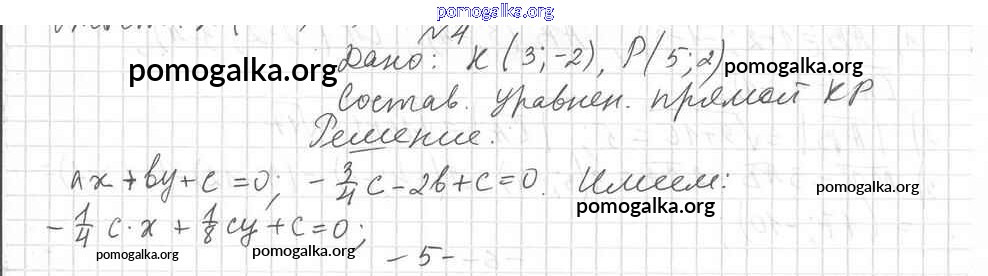 pomogalka.org
№4
Дано: K (3; -2), P(5; 2) pomogalka.org
pomogalka.org
Состав. уравнен. прямой KP
Решение.
ax + by + c = 0; - 3/4 c - 2b + c = 0. Имеем:
pomogalka.org
pomogalka.org
- 1/4 c · x + 1/8 cy + c = 0;
pomogalka.org pomogalka.org
- 5 -